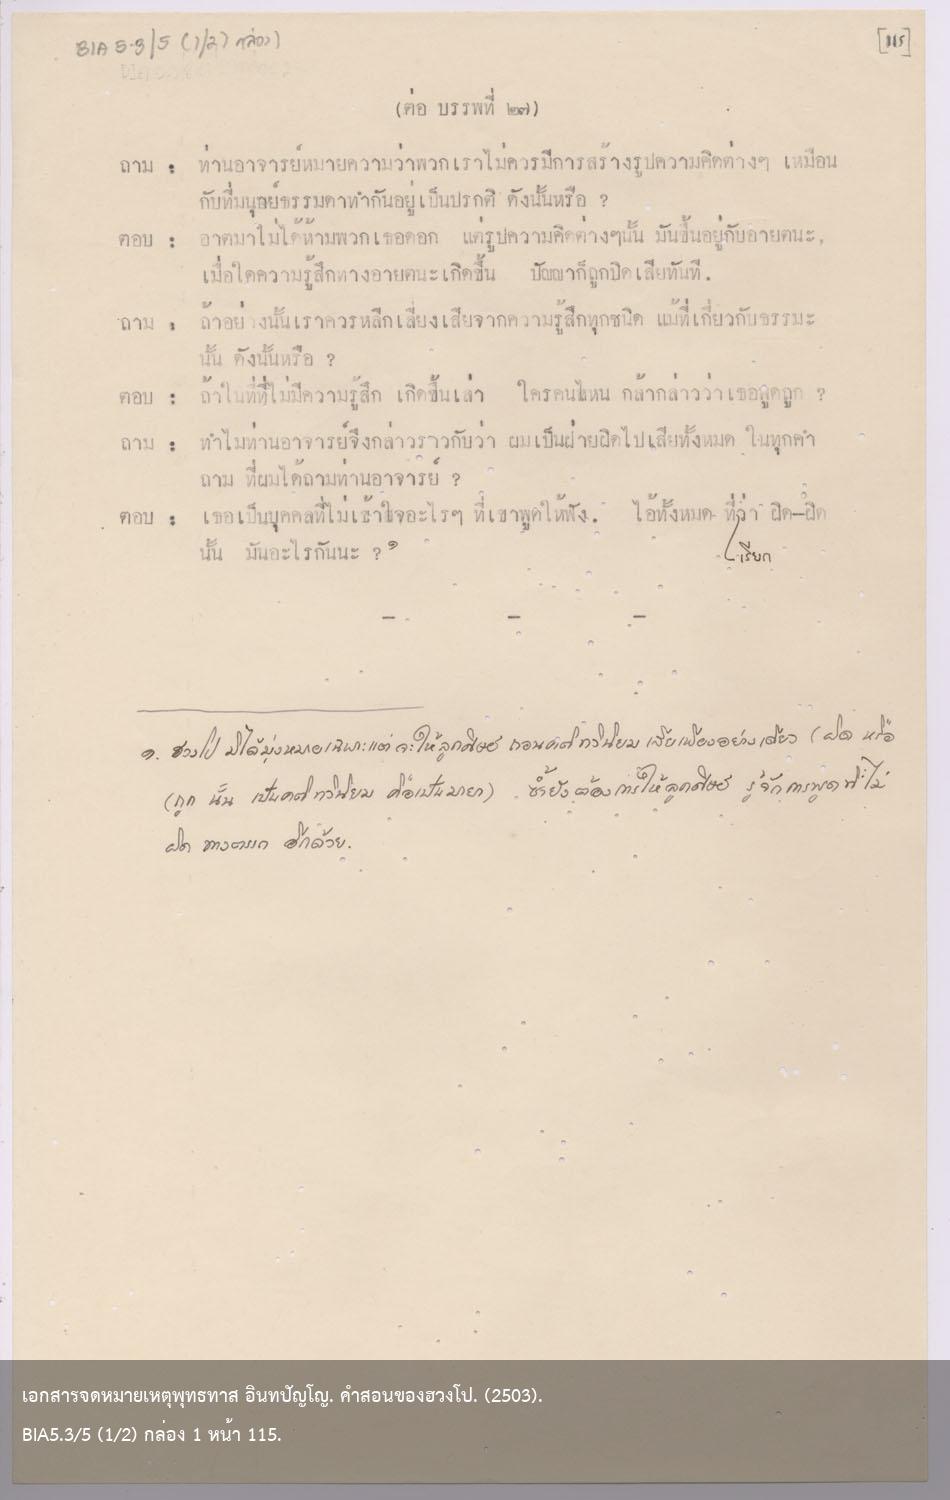 BIA 5.3/5 (1/2) กล่อง 1
[115]
(ต่อ บรรพที่ ๒๗)
ถาม : ท่านอาจารย์หมายความว่าพวกเราไม่ควรมีการสร้างรูปความคิดต่างๆ เหมือน
กับที่มนุษย์ธรรมดาทำกันอยู่เป็นปรกติ ดังนั้นหรือ ?
ตอบ : อาตมาไม่ได้ห้ามพวกเธอดอก แต่รูปความคิดต่างๆนั้น มันขึ้นอยู่กับอายตนะ,
เมื่อใดความรู้สึกทางอายตนะเกิดขึ้น ปัญญาก็ถูกปิดเสียทันที.
ถาม : ถ้าอย่างนั้นเราควรหลีกเลี่ยงเสียจากความรู้สึกทุกชนิด แม้ที่เกี่ยวกับธรรมะ
นั้น ดังนั้นหรือ ?
ตอบ : ถ้าในที่ที่ไม่มีความรู้สึก เกิดขึ้นเล่า ใครคนไหน กล้ากล่าวว่าเธอพูดถูก ?
ถาม : ทำไมท่านอาจารย์จึงกล่าวราวกับว่า ผมเป็นฝ่ายผิดไปเสียทั้งหมด ในทุกคำ
ถาม ที่ผมได้ถามท่านอาจารย์ ?
ตอบ : เธอเป็นบุคคลที่ไม่เข้าใจอะไรๆ ที่เขาพูดให้ฟัง. ไอ้ทั้งหมด ที่ว่า ผิด–ผิด
นั้น มันอะไรกันนะ ? ๑
เรียก
– – –
๑. ฮวงโป มิได้มุ่งหมายเฉพาะแต่จะให้ลูกศิษย์ ถอนคติทวินิยม เสียเพียงอย่างเดียว (ผิด หรือ
(ถูก นั้น เป็นคติทวินิยม คือเป็นมายา) ซ้ำยังต้องการให้ลูกศิษย์ รู้จักการพูดที่ไม่
ผิด อีกด้วย.
เอกสารจดหมายเหตุพุทธทาส อินทปัญโญ. คำสอนของฮวงโป. (2503).
BIA5.3/5 (1/2) กล่อง 1 หน้า 115.